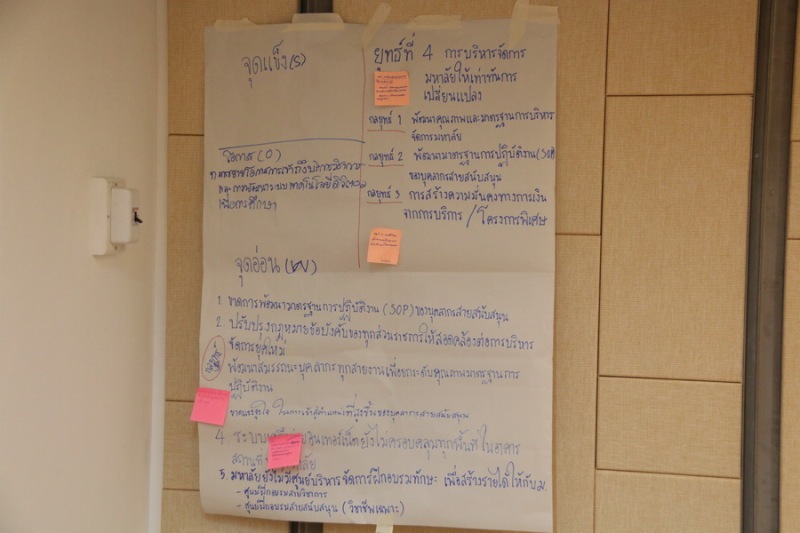 จุดแข็ง (S)
โอกาส (O)
เพื่อการศึกษา
ยุทธ์ที่ 4 การบริหารจัดการ
มหาลัยให้เท่าทันการ
เปลี่ยนแปลง
กลยุทธ์ 1 พัฒนาคุณภาพและมาตรฐานการบริหาร
จัดการมหาลัย
กลยุทธ์ 2 พัฒนามาตรฐานการปฏิบัติงาน (SOP)
ของบุคลากรสายสนับสนุน
กลยุทธ์ 3 การสร้างความมั่นคงทางการเงิน
จากการบริการ / โครงการพิเศษ
จุดอ่อน (W)
1. ขาดการพัฒนามาตรฐานการปฏิบัติงาน (SOP) ของบุคลากรสายสนับสนุน
2. ปรับปรุงกฎหมายข้อบังคับของทุกส่วนราชการให้สอดคล้องต่อการบริหาร
จัดการยุคใหม่
พัฒนาสมรรถนะบุคลากรทุกสายงานเพื่อยกระดับคุณภาพมาตรฐานการ
ปฏิบัติงาน
ขาดแรงจูงใจ ในการเข้าสู่ตำแหน่งที่สูงขึ้นของบุคลากรสายสนับสนุน
4. ระบบเครือข่ายอินเทอร์เน็ตยังไม่ครอบคลุมทุกพื้นที่ในอาคาร
5. มหาลัยยังไม่มีศูนย์บริหารจัดการฝึกอบรมทักษะ เพื่อสร้างรายได้ให้กับ ม.
- ศูนย์ฝึกอบรมสายวิชาการ
- ศูนย์ฝึกอบรมสายสนับสนุน (วิชาชีพเฉพาะ)